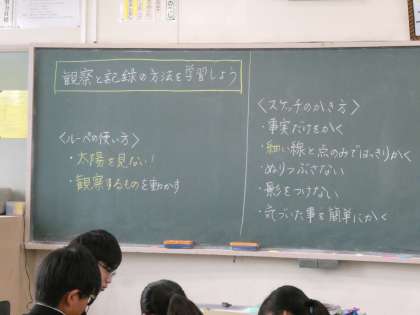 観察と記録の方法を学習しよう
〈ルーペの使い方〉
・太陽を見ない！
・観察するものを動かす
〈スケッチのかき方〉
・事実だけをかく
・細い線と点のみではっきりかく
・ぬりつぶさない
・影をつけない
・気づいた事を簡単にかく